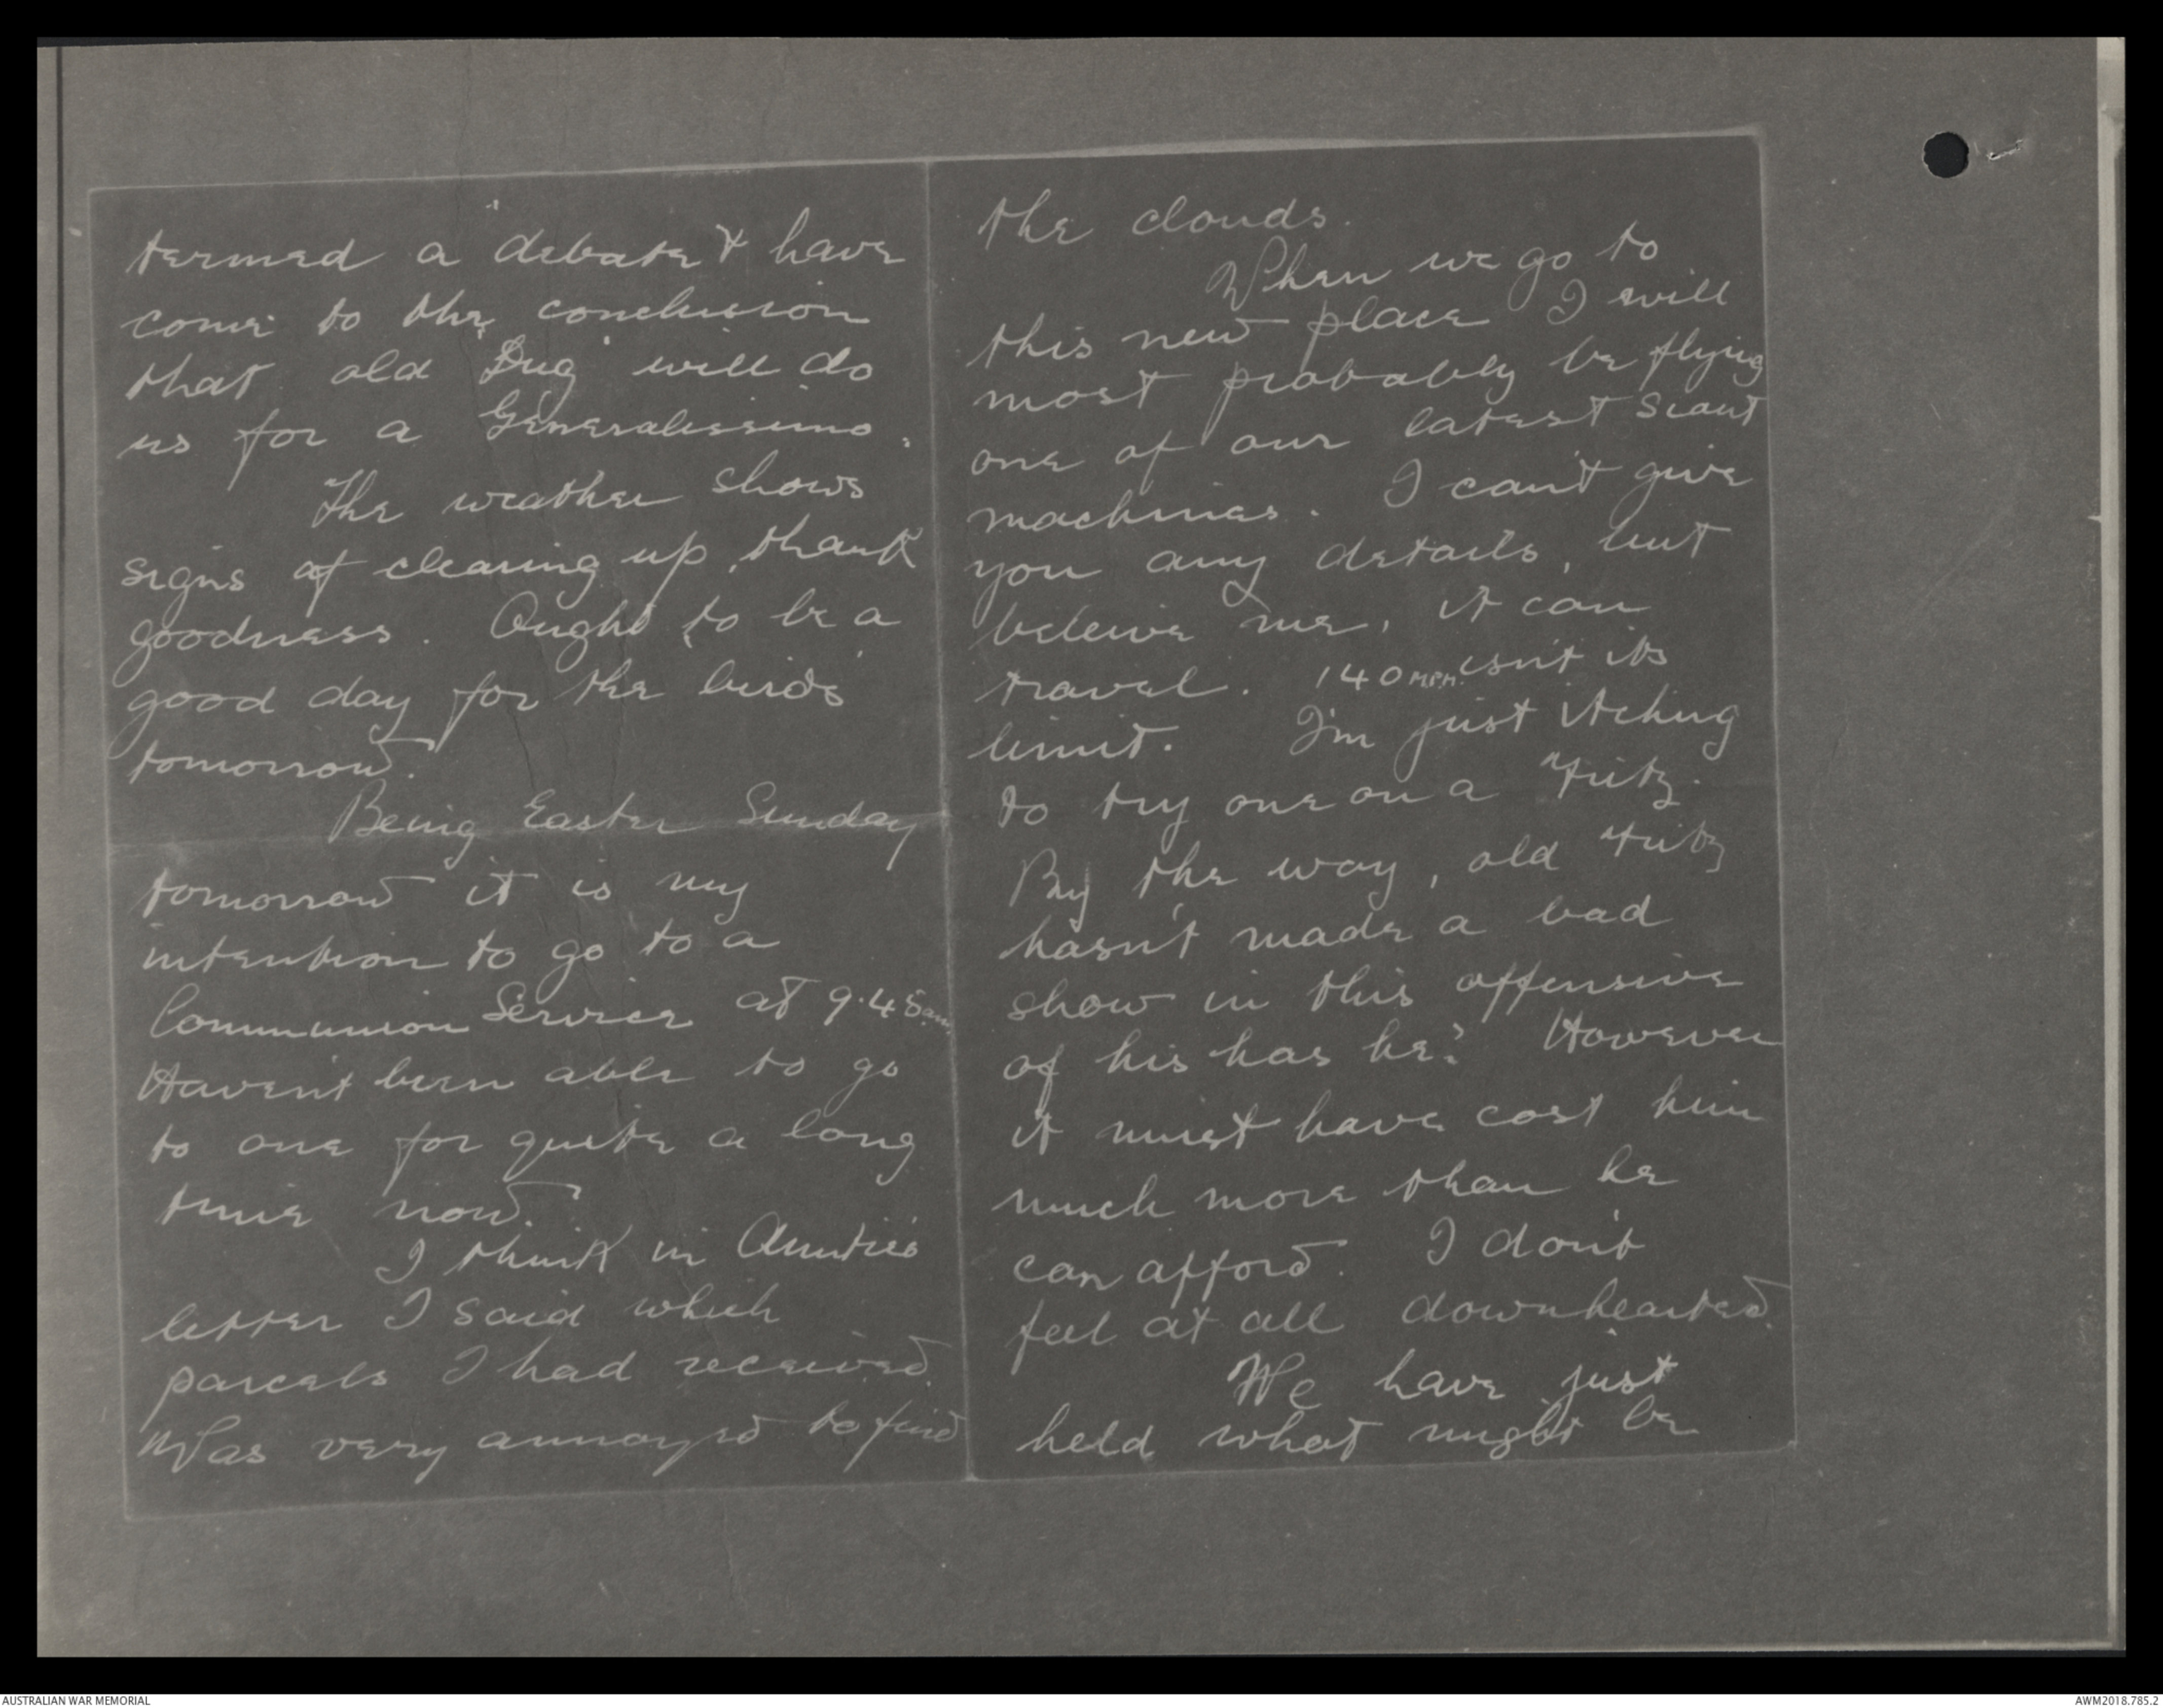 termed a debate & have
come to the conclusion
that old "Dug" will do
us for a Generalissimo.
The weather shows
signs of clearing up, thank
goodness. Ought to be a
good day for the birds
tomorrow.
Being Easter Sunday
tomorrow it is my
intention to go to a
Communion Service at 9.45am
Haven't been able to go
to one for quite a long
time now.
I think in Auntie's
letter I said which
parcels I had received.
Was very annoyed to find
the clouds.
When we go to
this new place I will
most probably be flying
one of our latest scout
machines. I can't give
you any details, but
beleive me, it can
travel. 140 M.P.H. isn't its
limit. I'm just itching
to try one on a Fritz.
By the way, old Fritz
hasn't made a bad
show in this offensive
of his has he? However
it must have cost him
much more than he
can afford. I don't
feel at all downhearted.
We have just
held what might be
AUSTRALIAN WAR MEMORIAL
AWM2018.785.2